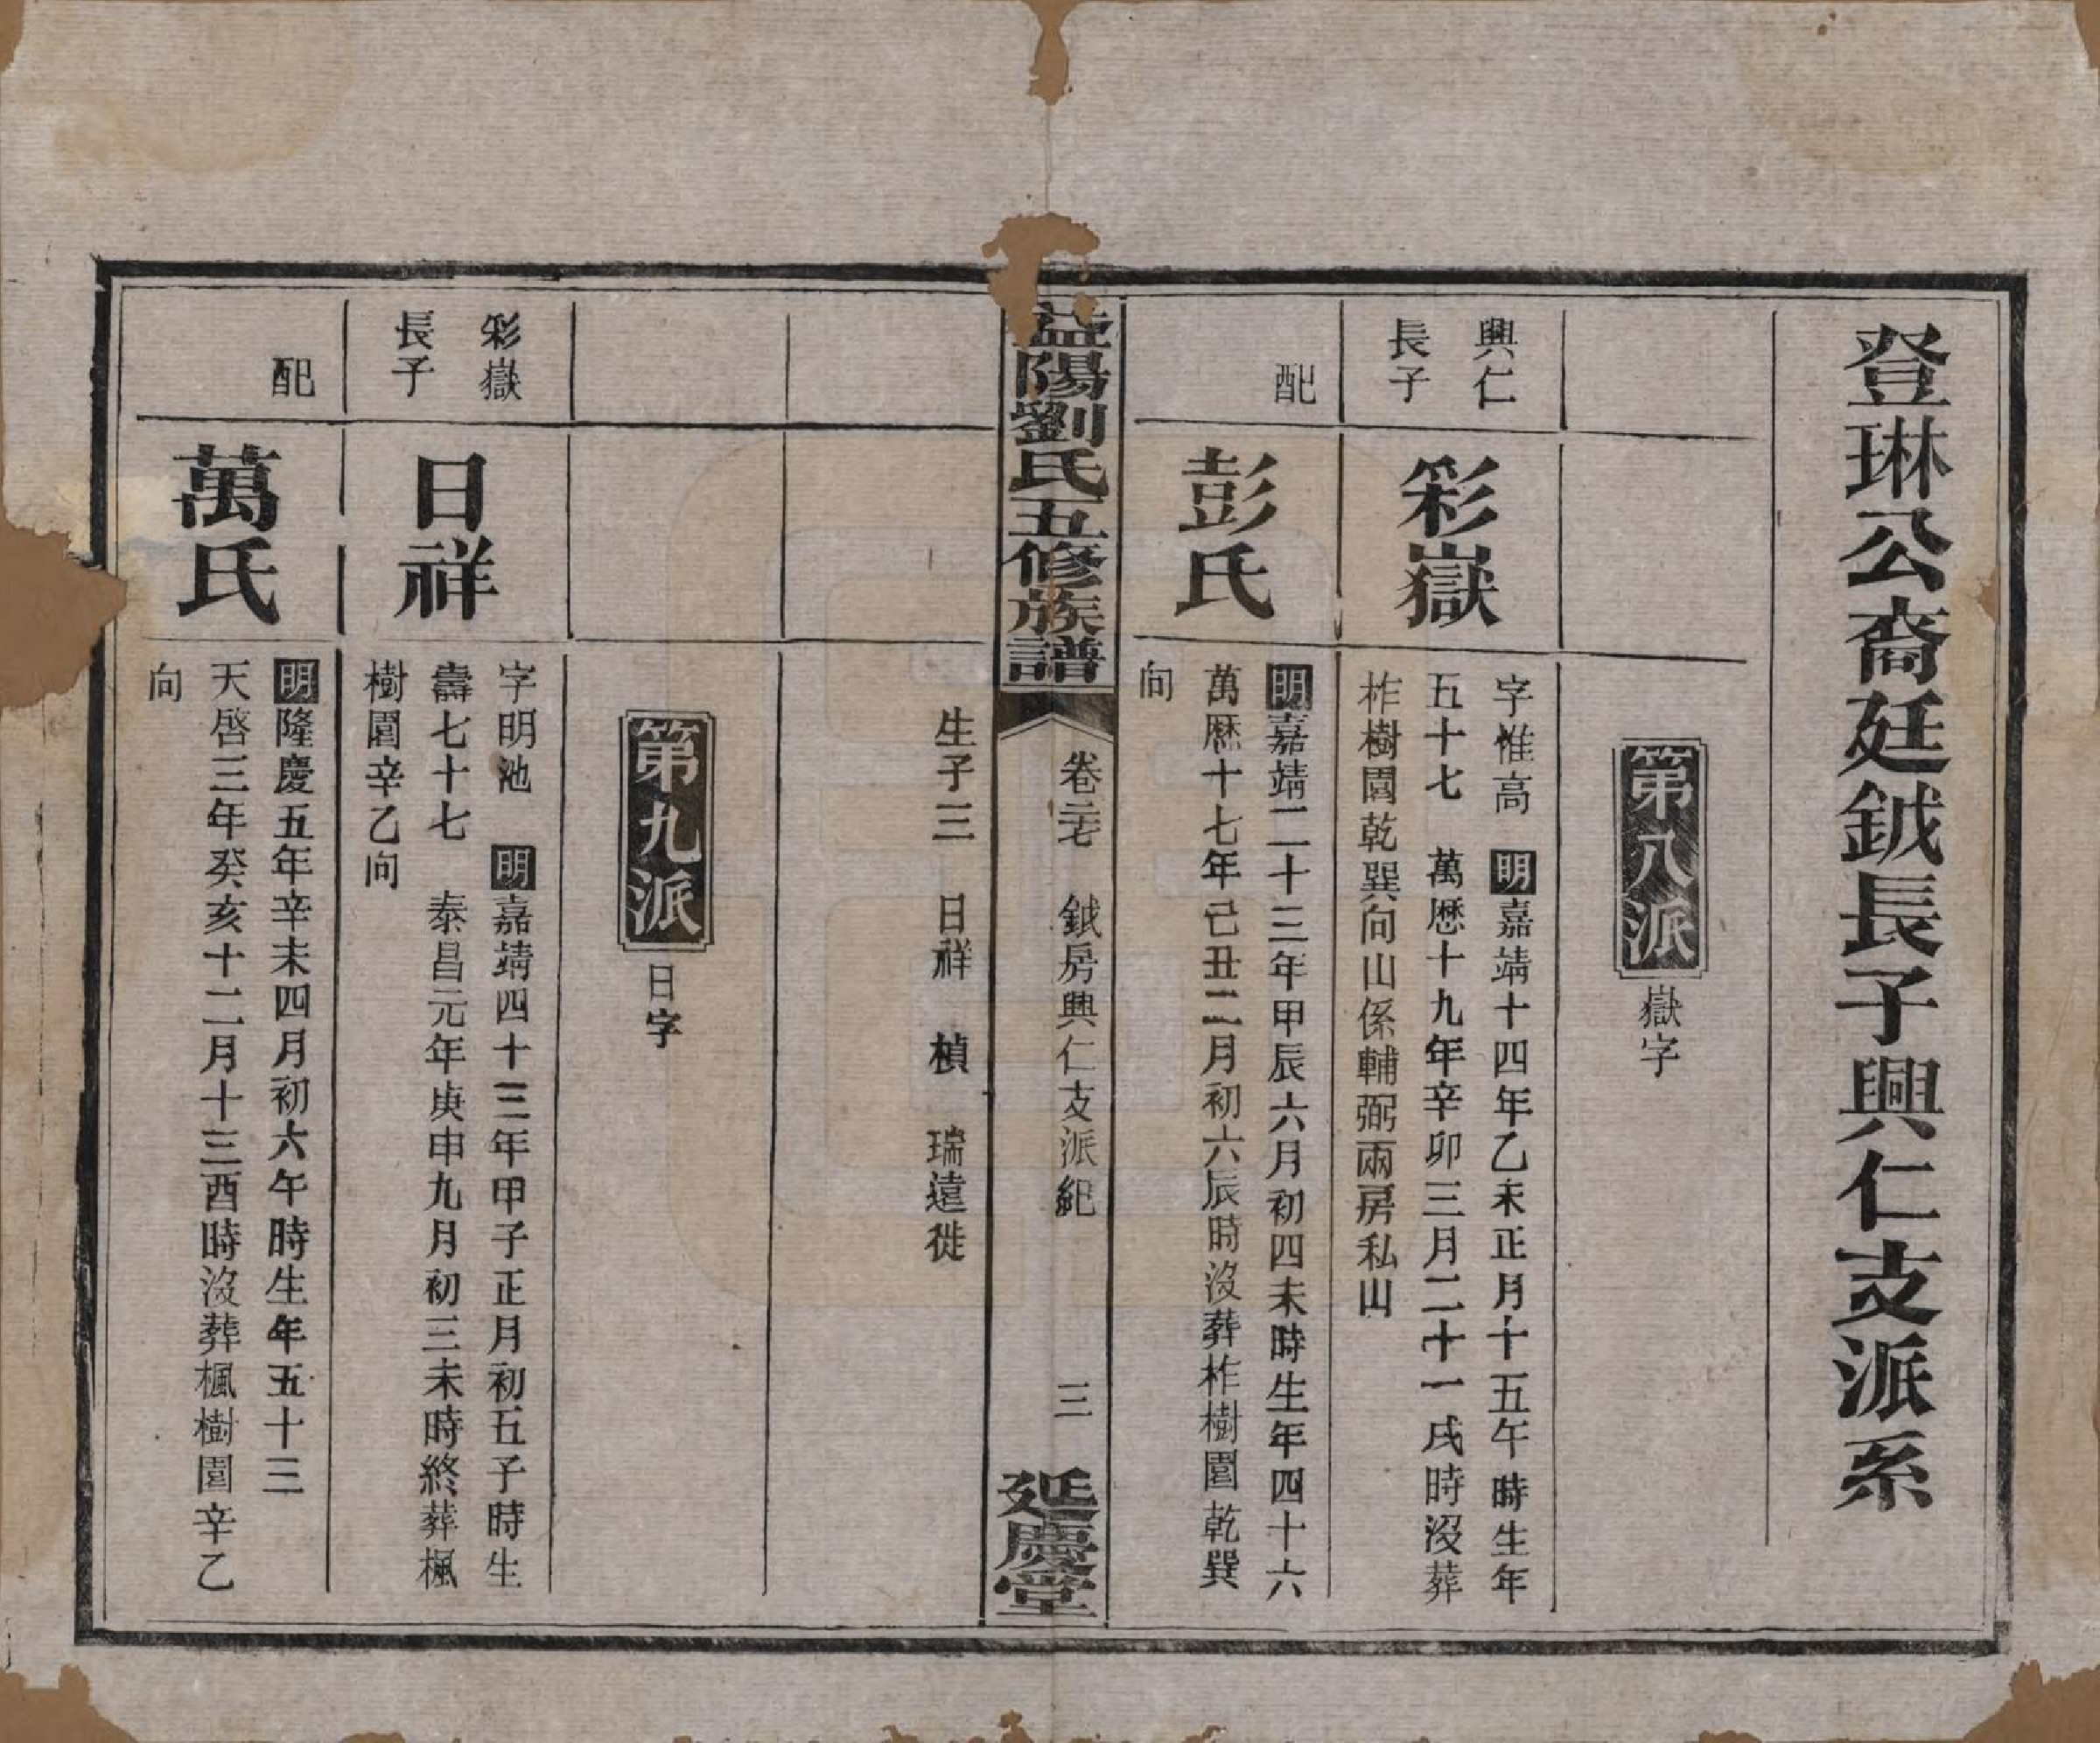 登琳公裔廷鉞長子興仁支派系
第八派
嶽字
興仁
長子
彩嶽
字惟高 明嘉靖十四年乙未正月十五午時生年
五十七 萬歷十九年辛卯三月二十一戌時沒葬
柞樹園乾巽向山係輔弼兩房私山
配
彭氏
明嘉靖二十三年甲辰六月初四未時生年四十六
萬歷十七年己丑二月初六辰時沒葬柞樹園乾巽
向
益陽劉氏五修族譜
卷 鉞房興仁支派紀
三
延慶堂
生子三 日祥 楨 瑞遠徙
第九派
日字
彩嶽
長子
日祥
字明池 明嘉靖四十三年甲子正月初五子時生
壽七十七 泰昌元年庚申九月初三未時終葬楓
樹園辛乙向
配
萬氏
明隆慶五年辛未四月初六午時生年五十三
天啓三年癸亥十二月十三酉時沒葬楓樹園辛乙
向